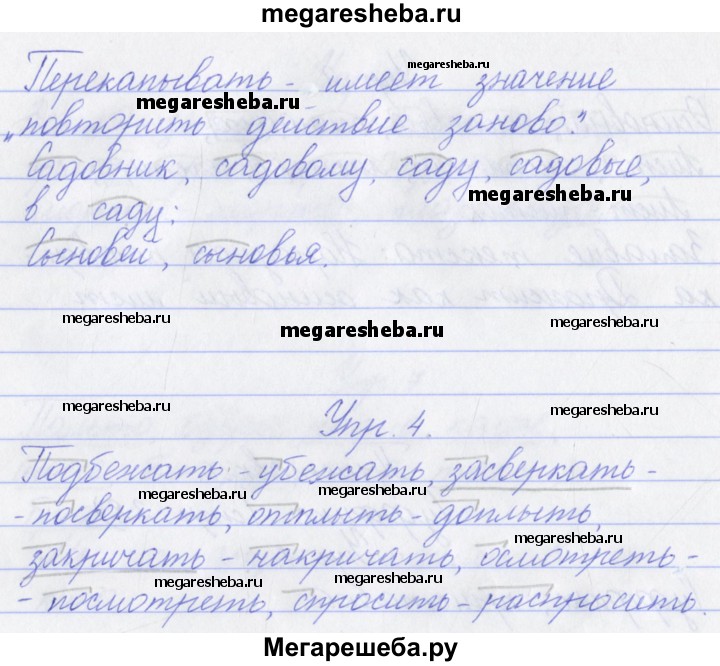 megaresheba.ru
megaresheba.ru
Перекапывать - имеет значение
megaresheba.ru
„повторить действие заново."
Садовник, садовому, саду, садовые,
megaresheba.ru
в саду;
Сыновей, сыновья.
megaresheba.ru
megaresheba.ru
megaresheba.ru
megaresheba.ru
megaresheba.ru
Упр. 4.
Подбежать - убежать, засверкать -
megaresheba.ru
megaresheba.ru
- посверкать, отплыть - доплыть,
megaresheba.ru
закричать - накричать, осмотреть -
megaresheba.ru
megaresheba.ru
megaresheba.ru
- посмотреть, спросить - распросить.
Мегарешеба.ру